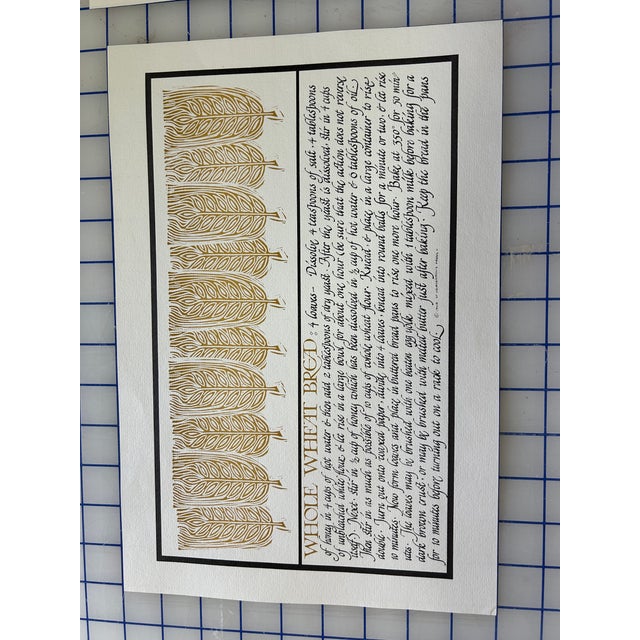 WHOLE WHEAT BREAD : 4 loaves – Dissolve 4 teaspoons of salt · 4 tablespoons
of honey in 4 cups of hot water & then add 2 tablespoons of dry yeast · After the yeast is dissolved · stir in 4 cups
of unbleached white flour & let rise in a large bowl for about one hour (be sure that the action does not reverse
itself) Next · stir in ½ cup of honey which has been dissolved in ½ cup of hot water & 6 tablespoons of oil ·
Then stir in as much as possible of 10 cups of whole wheat flour · Knead · & place in a large container to rise
double · Turn out onto waxed paper · divide into 4 loaves · knead into round balls for a minute or two · & let rise
10 minutes · Now form loaves and place in buttered bread pans to rise one more hour · Bake at 350° for 50 min
utes · The loaves may be brushed with one beaten egg yolk mixed with 1 tablespoon milk before baking for a
dark brown crust · or may be brushed with melted butter just after baking · Keep the bread in the pans
for 10 minutes before turning out on a rack to cool ·